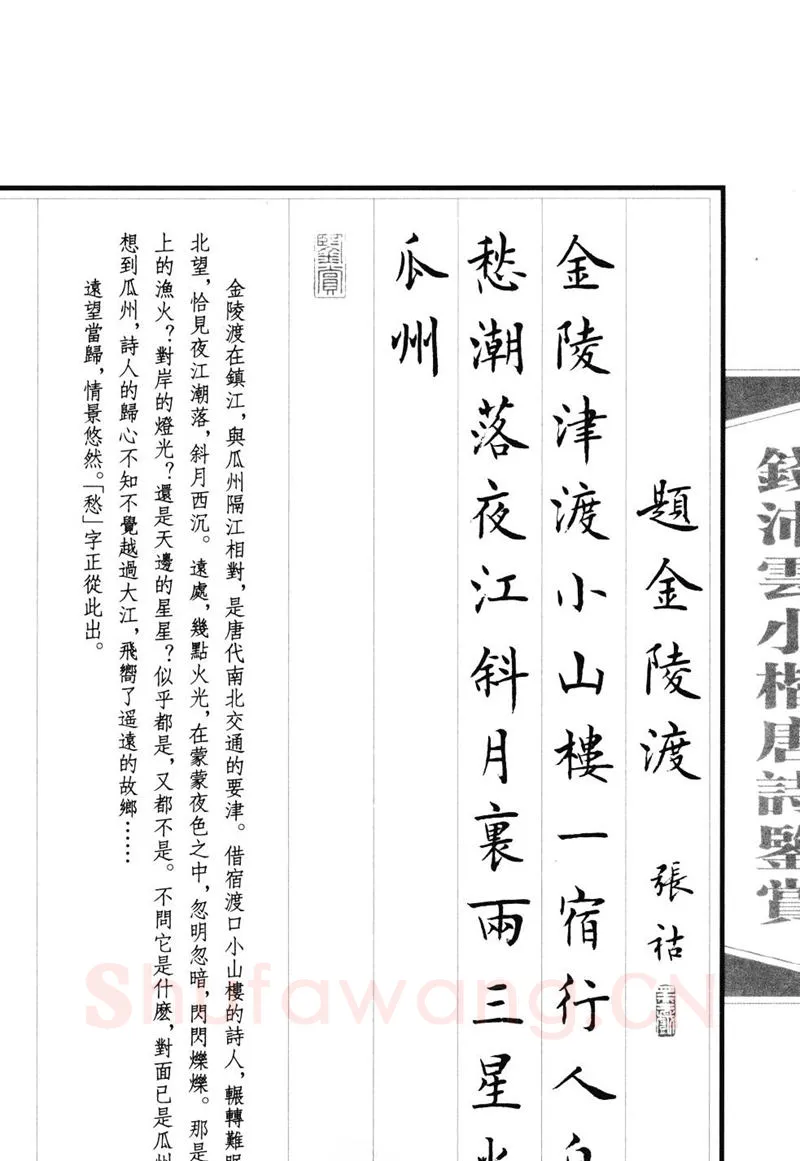 錢沛雲小楷唐詩鑒賞
題金陵渡 張祜
金陵津渡小山樓一宿行人自
愁潮落夜江斜月裏兩三星火
瓜州
鑒賞
金陵渡在鎮江，與瓜州隔江相對，是唐代南北交通的要津。借宿渡口小山樓的詩人，輾轉難眠
北望，恰見夜江潮落，斜月西沉。遠處，幾點火光，在蒙蒙夜色之中，忽明忽暗，閃閃爍爍。那是
上的漁火？對岸的燈光？還是天邊的星星？似乎都是，又都不是。不問它是什麽，對面已是瓜州
想到瓜州，詩人的歸心不知不覺越過大江，飛嚮了遥遠的故鄉……
遠望當歸，情景悠然。「愁」字正從此出。
Shufawang.CN